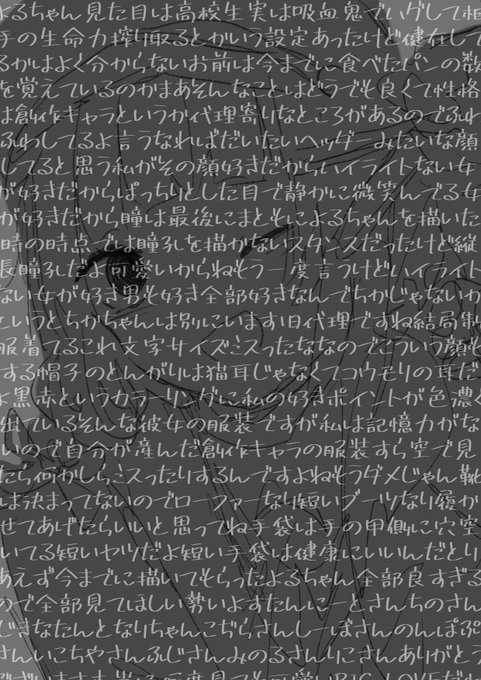 よるちゃん見た目は高校生実は吸血鬼でいげして相
手の生命力搾り取るとかいう設定あったけど健在して
るかはよく分からないお前は今までに食べたパンの数
を覚えているのかまあそんなことはどうでも良くて性格
は創作キャラというか代理寄りなところがあるのでふわ
ふわしてるよ言うなればだいたいヘッダーみたいな顔
してると思う私がその顔好きだからハイライトない女
が好きだからぱっちりとした目で静かに微笑んでる女
が好きだから瞳は最後にまともによるちゃんを描いた
時の時点では瞳孔を描かないスタンスだったけど縦
長瞳孔だよ可愛いからねもう一度言うけどハイライト
ない女が好き男も好き全部好きなんでちかじゃないか
というとちかちゃんは別にいます旧代理ですね結局制
服着てるこれ文字サイズミスったなななのでこういう顔も
する帽子のとんがりは猫耳じゃなくコウモリの耳だ
よ黒赤というカラーリングに私の好きポイントが色濃く
出ているそんな彼女の服装ですが私は記憶力がな
いので自分が産んだ創作キャラの服装すら空で見
たら何かしらミスったりするんですよねもうダメじゃん靴
は決まってないのでローファーなり短いブーツなり履か
せてあげたらいいと思ってね手袋は手の甲側に穴空
いてる短いヤツだよ短い手袋は健康にいいんだとり
あえず今までに描いてもらったよるちゃん全部良すぎる
ので全部見てほしい勢いよすたんにーとさんちのさん
じきなたんとなりちゃんこぢらさんしーぱさんのんぱぷ
さんいこちやさんふじさんみのるさんりこさんありがとう